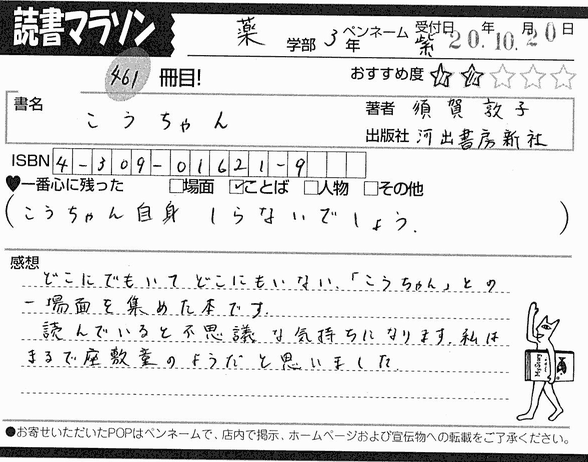 読書マラソン
薬 学部 3年 ペンネーム 紫 受付日 20年10月20日
461 冊目! おすすめ度 ★★☆☆☆
書名 こうちゃん
著者 須賀敦子
出版社 河出書房新社
ISBN 4-309-01621-9
♥一番心に残った □場面 ☑ことば □人物 □その他
(こうちゃん自身 しらないでしょう.)
感想
どこにでもいて どこにもいない.「こうちゃん」との
一場面を集めた本です.
読んでいると不思議な気持ちになります.私は
まるで座敷童のようだと思いました.
●お寄せいただいたPOPはペンネームで、店内で掲示、ホームページおよび宣伝物への転載をご了承ください。